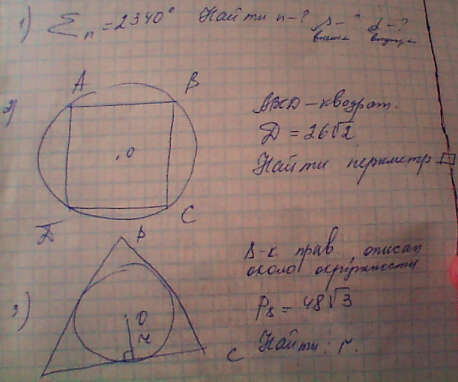 1) Σn = 2340° Найти n-?
2)
A B
O
D C
ABCD – квадрат.
D = 26√2
Найти периметр □
3)
B
O
r
C
Δ-к прав. описан
около окружности
P₈ = 48√3
Найти: r.